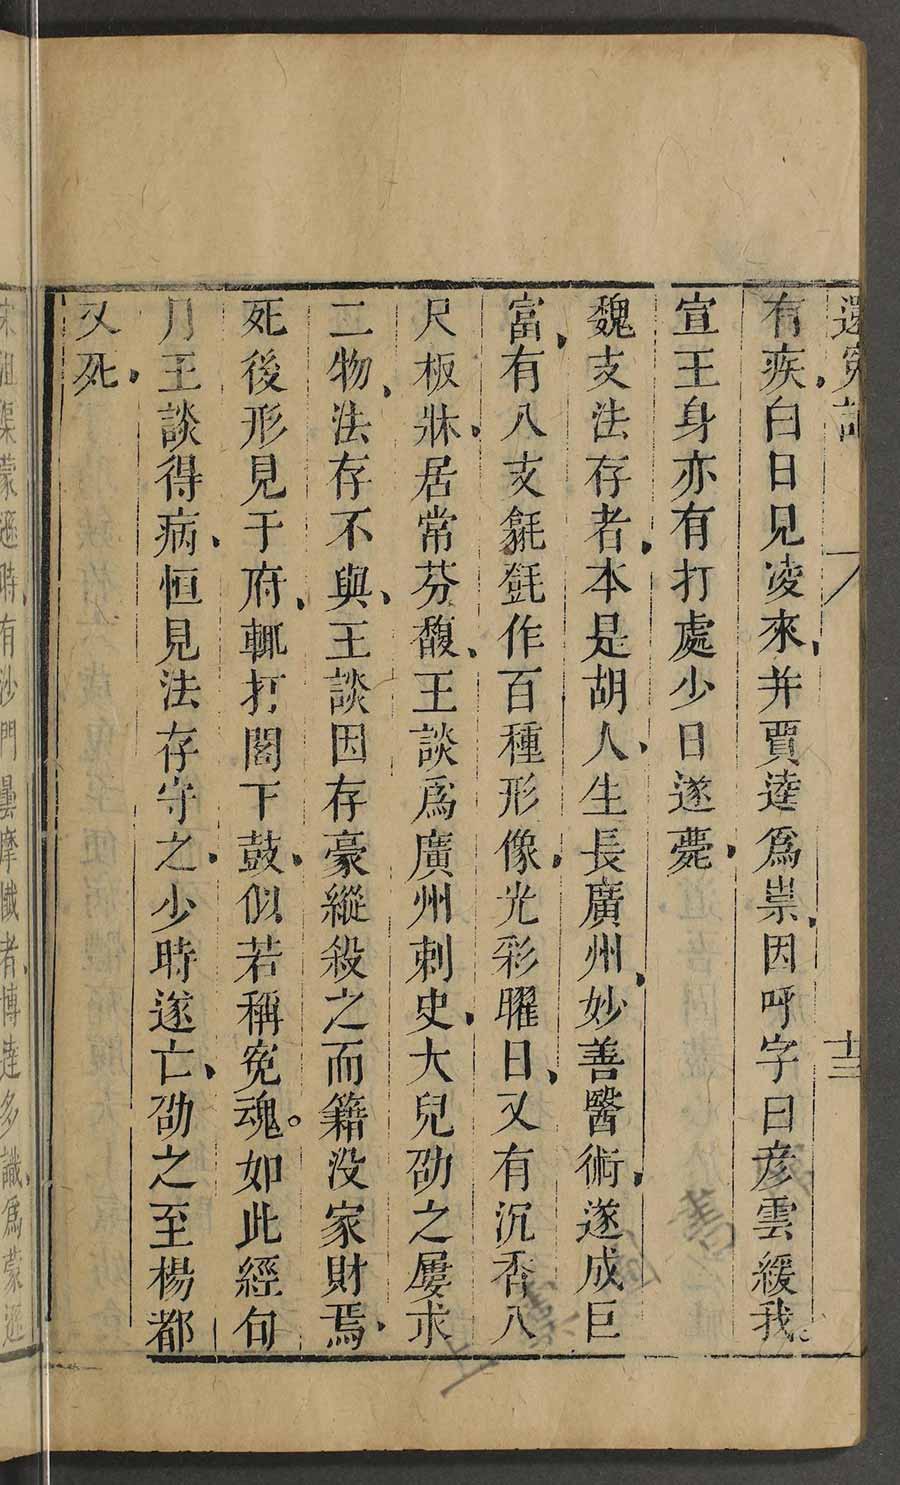 還冤記
十三
有疾白日見凌來并賈逵爲祟因呼字曰彦雲緩我
宣王身亦有打處少日遂薨
魏支法存者本是胡人生長廣州妙善醫術遂成巨
富有八支㲣㲪作百種形像光彩曜日又有沉香八
尺板牀居常芬馥王談爲廣州刺史大兒劭之屢求
二物法存不與王談因存豪縱殺之而籍没家財焉
死後形見于府輒打閣下鼓似若稱冤魂如此經旬
月王談得病恒見法存守之少時遂亡劭之至楊都
又死
宋沮渠蒙遜時有沙門曇摩懺者博達多識爲蒙遜